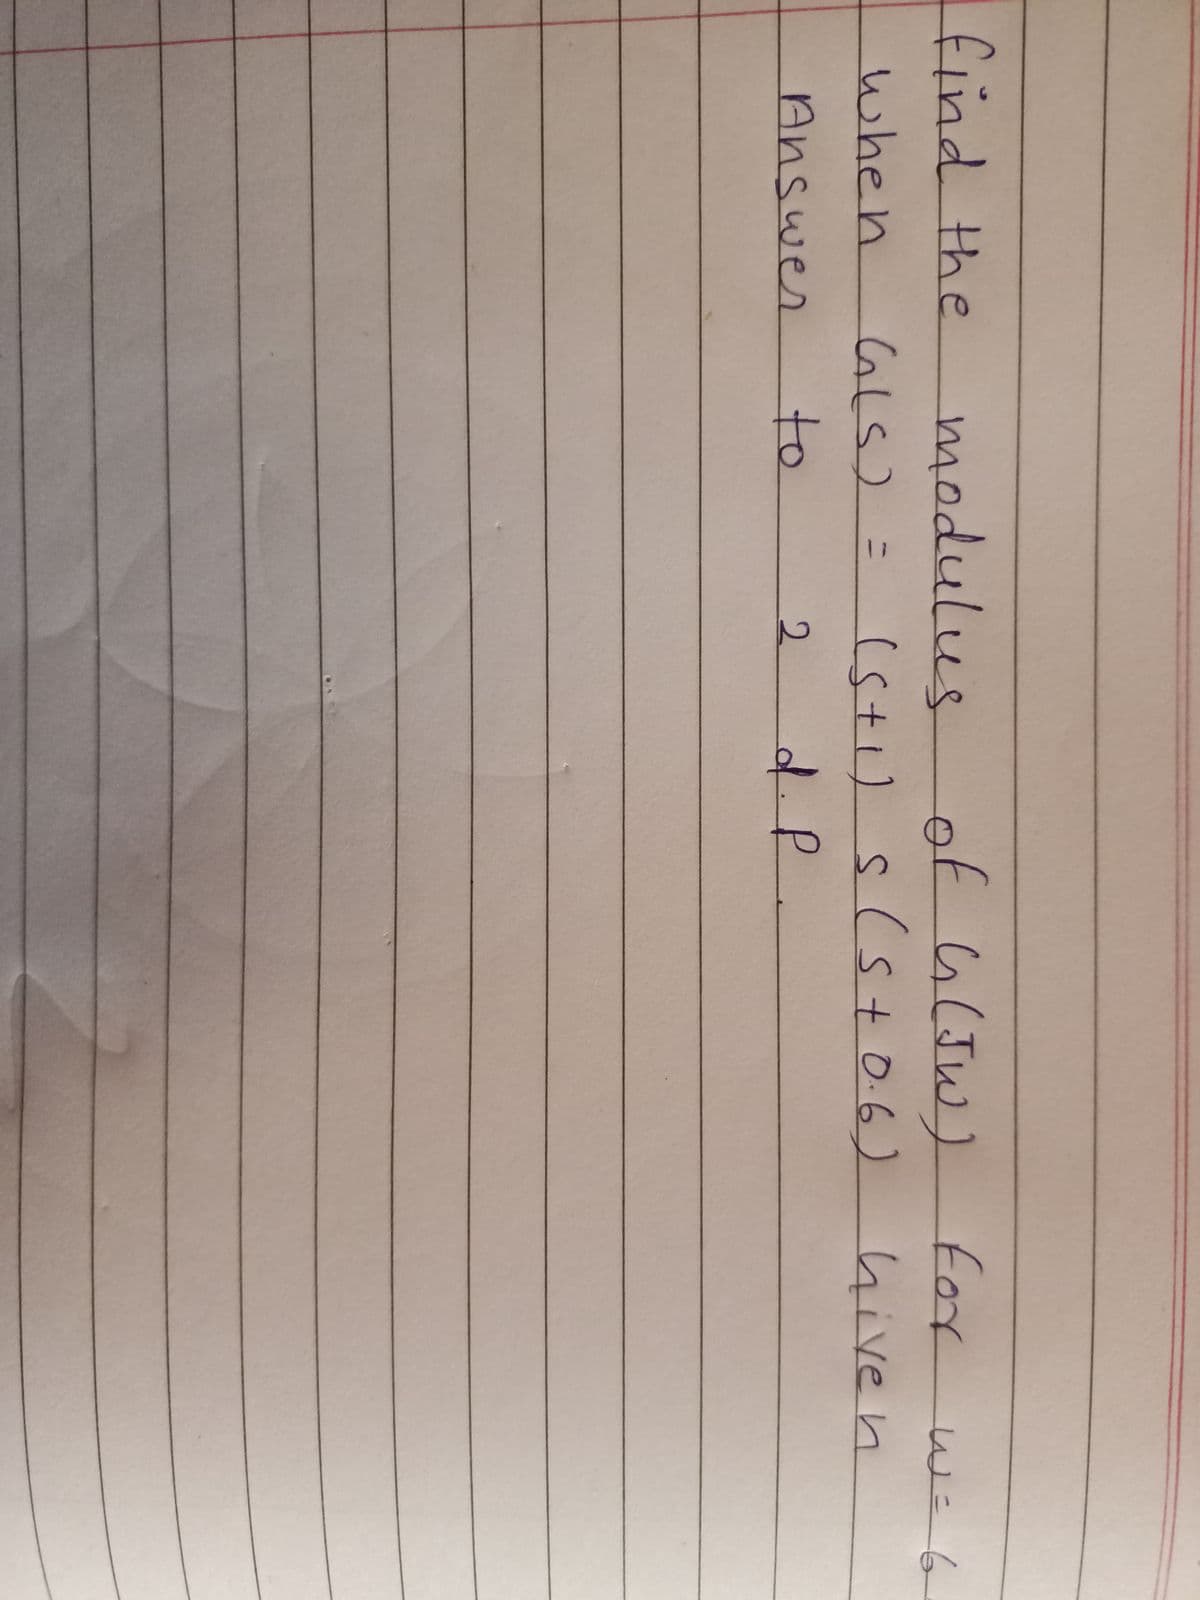 find the modulus of G(Jw) for w=6
when G(s) = (s+1) s(s+0.6) Given
Answer to 2 d.p.